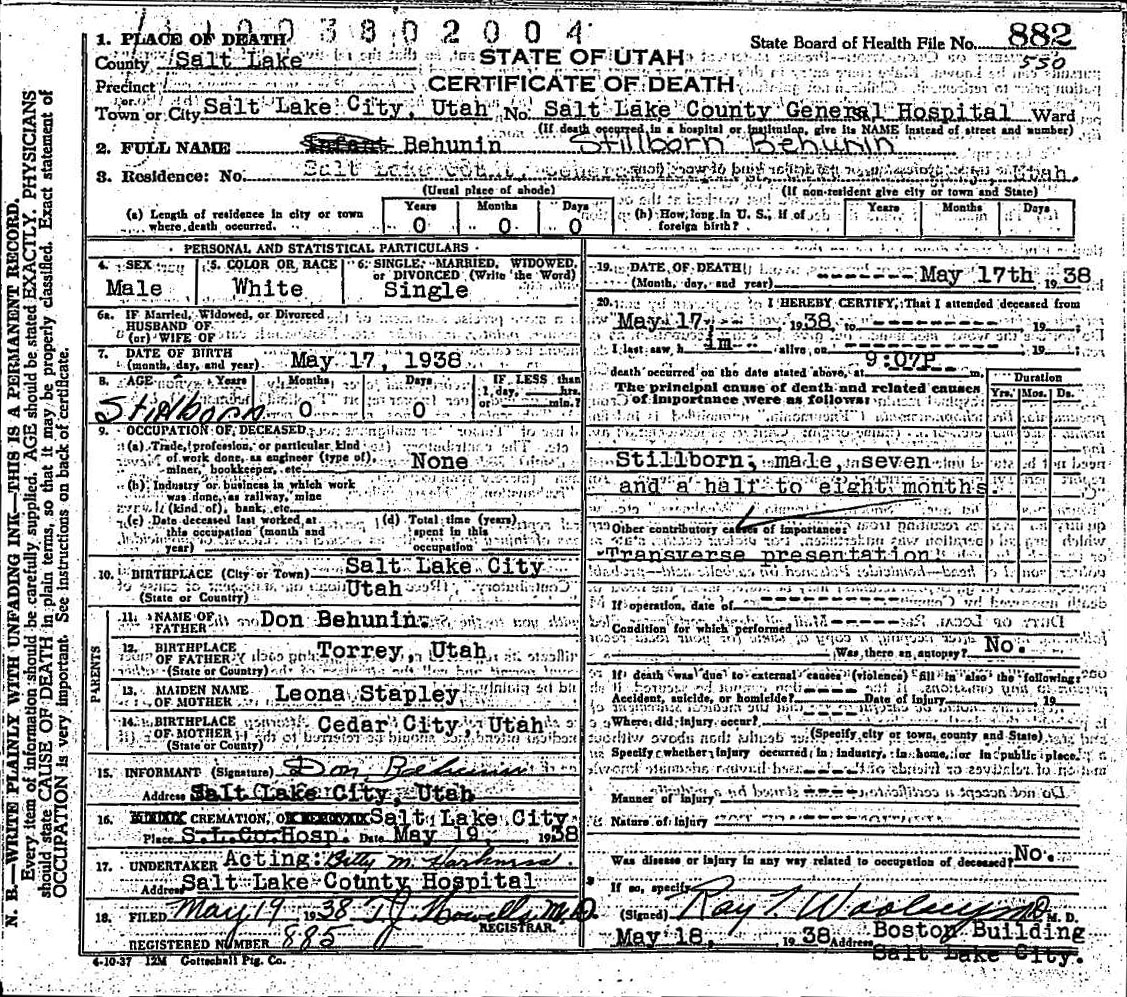 1003802004
1. PLACE OF DEATH
State Board of Health File No. 882
County Salt Lake
STATE OF UTAH
550
Precinct
CERTIFICATE OF DEATH
Town or City Salt Lake City, Utah No. Salt Lake County General Hospital Ward
(If death occurred in a hospital or institution, give its NAME instead of street and number)
2. FULL NAME Infant Behunin Stillborn Behunin
3. Residence: No. Salt Lake Utah.
(Usual place of abode) (If non-resident give city or town and State)
(a) Length of residence in city or town where death occurred. Years 0 Months 0 Days 0
(b) How long in U. S., if of foreign birth? Years Months Days
PERSONAL AND STATISTICAL PARTICULARS
4. SEX Male
5. COLOR OR RACE White
6. SINGLE, MARRIED, WIDOWED, or DIVORCED (Write the Word) Single
6a. IF Married, Widowed, or Divorced
HUSBAND OF
(or) WIFE OF
7. DATE OF BIRTH
(month, day, and year) May 17, 1938
8. AGE Years Months Days IF LESS than
1 day, hrs.
or min.?
Stillborn 0 0
9. OCCUPATION OF DECEASED
(a) Trade, profession, or particular kind
of work done, as engineer (type of),
miner, bookkeeper, etc. None
(b) Industry or business in which work
was done, as railway, mine
(kind of), bank, etc.
(c) Date deceased last worked at
this occupation (month and
year)
(d) Total time (years)
spent in this
occupation
10. BIRTHPLACE (City or Town) Salt Lake City
(State or Country) Utah
PARENTS
11. NAME OF
FATHER Don Behunin.
12. BIRTHPLACE
OF FATHER Torrey, Utah
(State or Country)
13. MAIDEN NAME
OF MOTHER Leona Stapley
14. BIRTHPLACE
OF MOTHER Cedar City, Utah
(State or County)
15. INFORMANT (Signature) Don Behunin
Address Salt Lake City, Utah
16. CREMATION, O Salt Lake City
Place S.L.Co.Hosp. Date May 19, 1938
17. UNDERTAKER Acting: Betty M. Harkness.
Address Salt Lake County Hospital
18. FILED May 19 1938 T J Howells M.D.
REGISTRAR.
REGISTERED NUMBER 885
4-10-37 12M Gottschall Ptg. Co.
19. DATE OF DEATH
(Month, day, and year) May 17th 1938
20. I HEREBY CERTIFY, That I attended deceased from
May 17, 1938, to 19
I last saw h im alive on 19
death occurred on the date stated above, at 9:07P m.
The principal cause of death and related causes
of importance were as follows:
Duration
Yrs. Mos. Ds.
Stillborn, male, seven
and a half to eight months.
Other contributory causes of importance:
Transverse presentation
If operation, date of
Condition for which performed
Was there an autopsy? No.
If death was due to external causes (violence) fill in also the following:
Accident, suicide, or homicide? Date of Injury 19
Where did injury occur?
(Specify city or town, county and State)
Specify whether injury occurred in industry, in home, or in public place.
Manner of injury
Nature of Injury
Was disease or injury in any way related to occupation of deceased? No.
If so, specify
(Signed) Ray T. Woolsey MD M. D.
May 18, 1938 Address Boston Building
Salt Lake City.
N. B.—WRITE PLAINLY WITH UNFADING INK—THIS IS A PERMANENT RECORD.
Every item of information should be carefully supplied. AGE should be stated EXACTLY. PHYSICIANS
should state CAUSE OF DEATH in plain terms, so that it may be properly classified. Exact statement of
OCCUPATION is very important. See instructions on back of certificate.